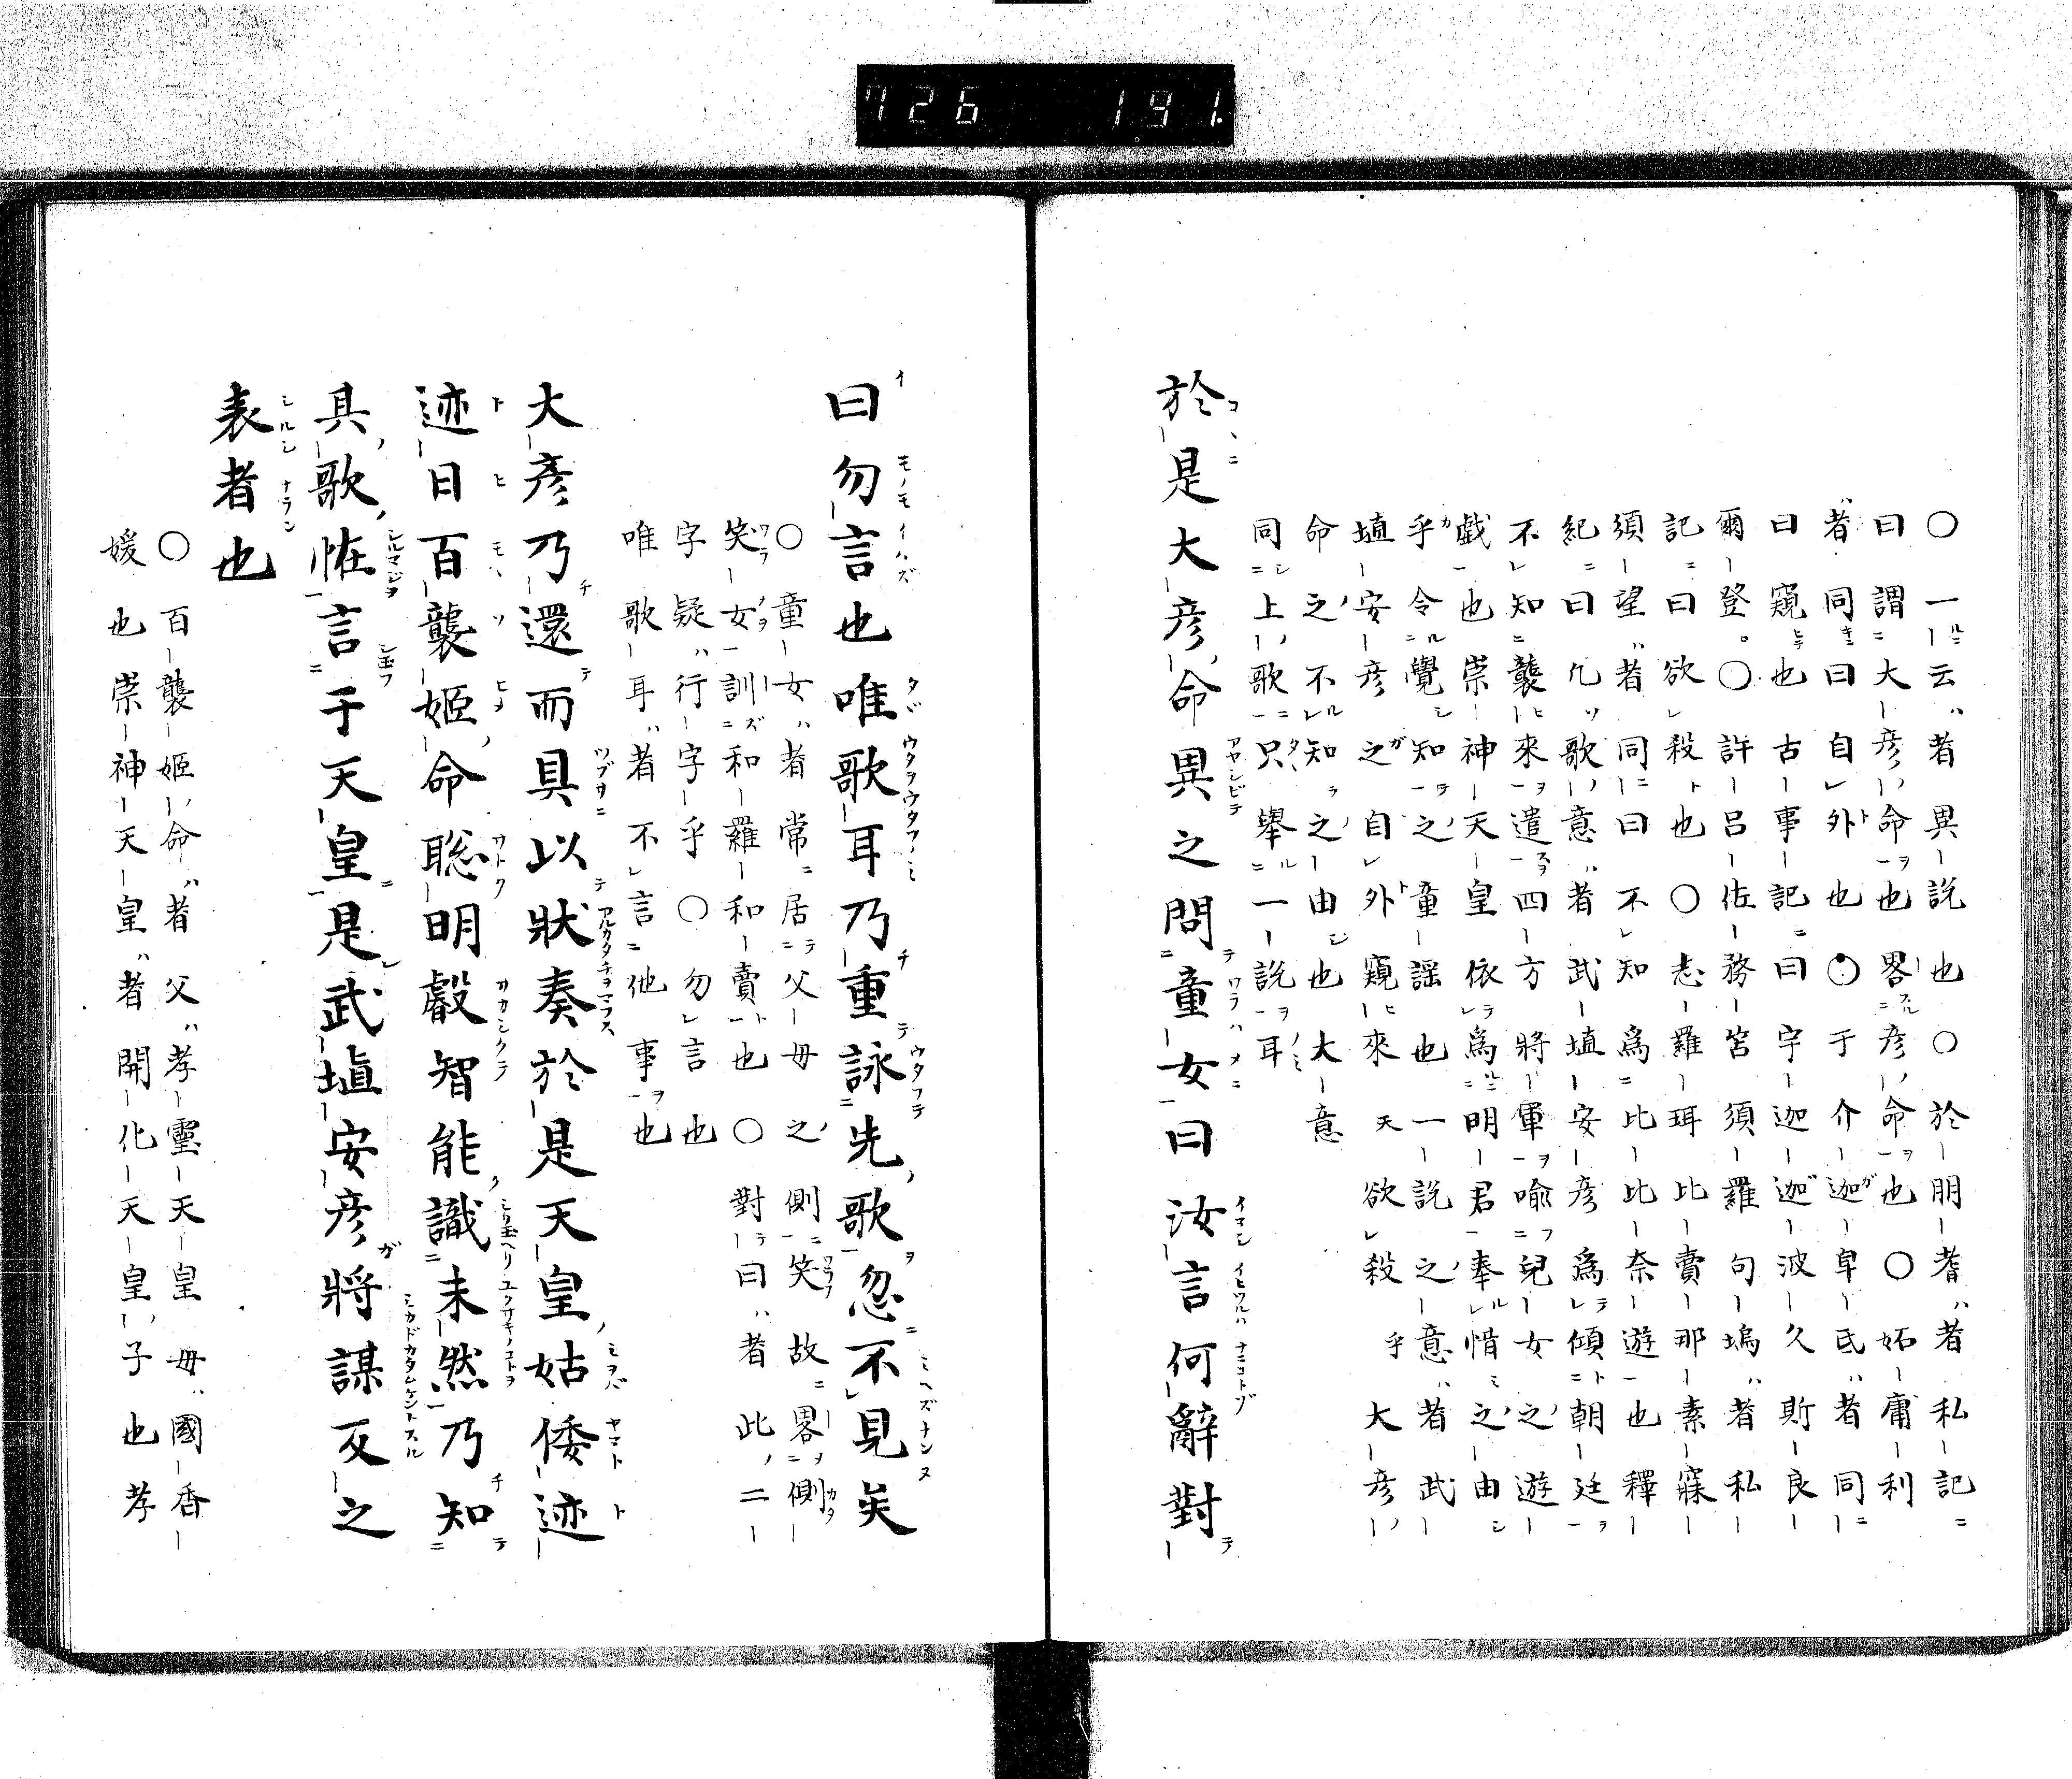 726 191.
○一云者異説也○於朋耆者私記
曰謂大彦命也畧彦命也○妬庸利
者同曰自外也○于介迦卑氐者同
曰窺也古事記曰宇迦迦波久斯良
爾登。○許呂佐務筈須羅句塢者私
記曰欲殺也○志羅珥比賣那素寐
須望者同曰不知爲比比奈遊也釋
紀曰凢歌意者武埴安彦爲傾朝廷
不知襲來遣四方將軍喩兒女之遊
戯也崇神天皇依爲明君奉惜之由
乎令覺知之童謡也一説之意者武
埴安彦之自外窺來天欲殺乎大彦
命之不知之由也大意
同上歌只擧一説耳
於是大彦命異之問童女曰汝言何辭對
曰勿言也唯歌耳乃重詠先歌忽不見矣
○童女者常居父母之側笑故畧側
笑女訓和羅和賣也○對曰者此二
字疑行字乎○勿言也
唯歌耳者不言他事也
大彦乃還而具以狀奏於是天皇姑倭迹
迹日百襲姬命聡明叡智能識未然乃知
具歌恠言于天皇是武埴安彦將謀反之
表者也
○百襲姬命者父孝靈天皇母國香
媛也崇神天皇者開化天皇子也孝